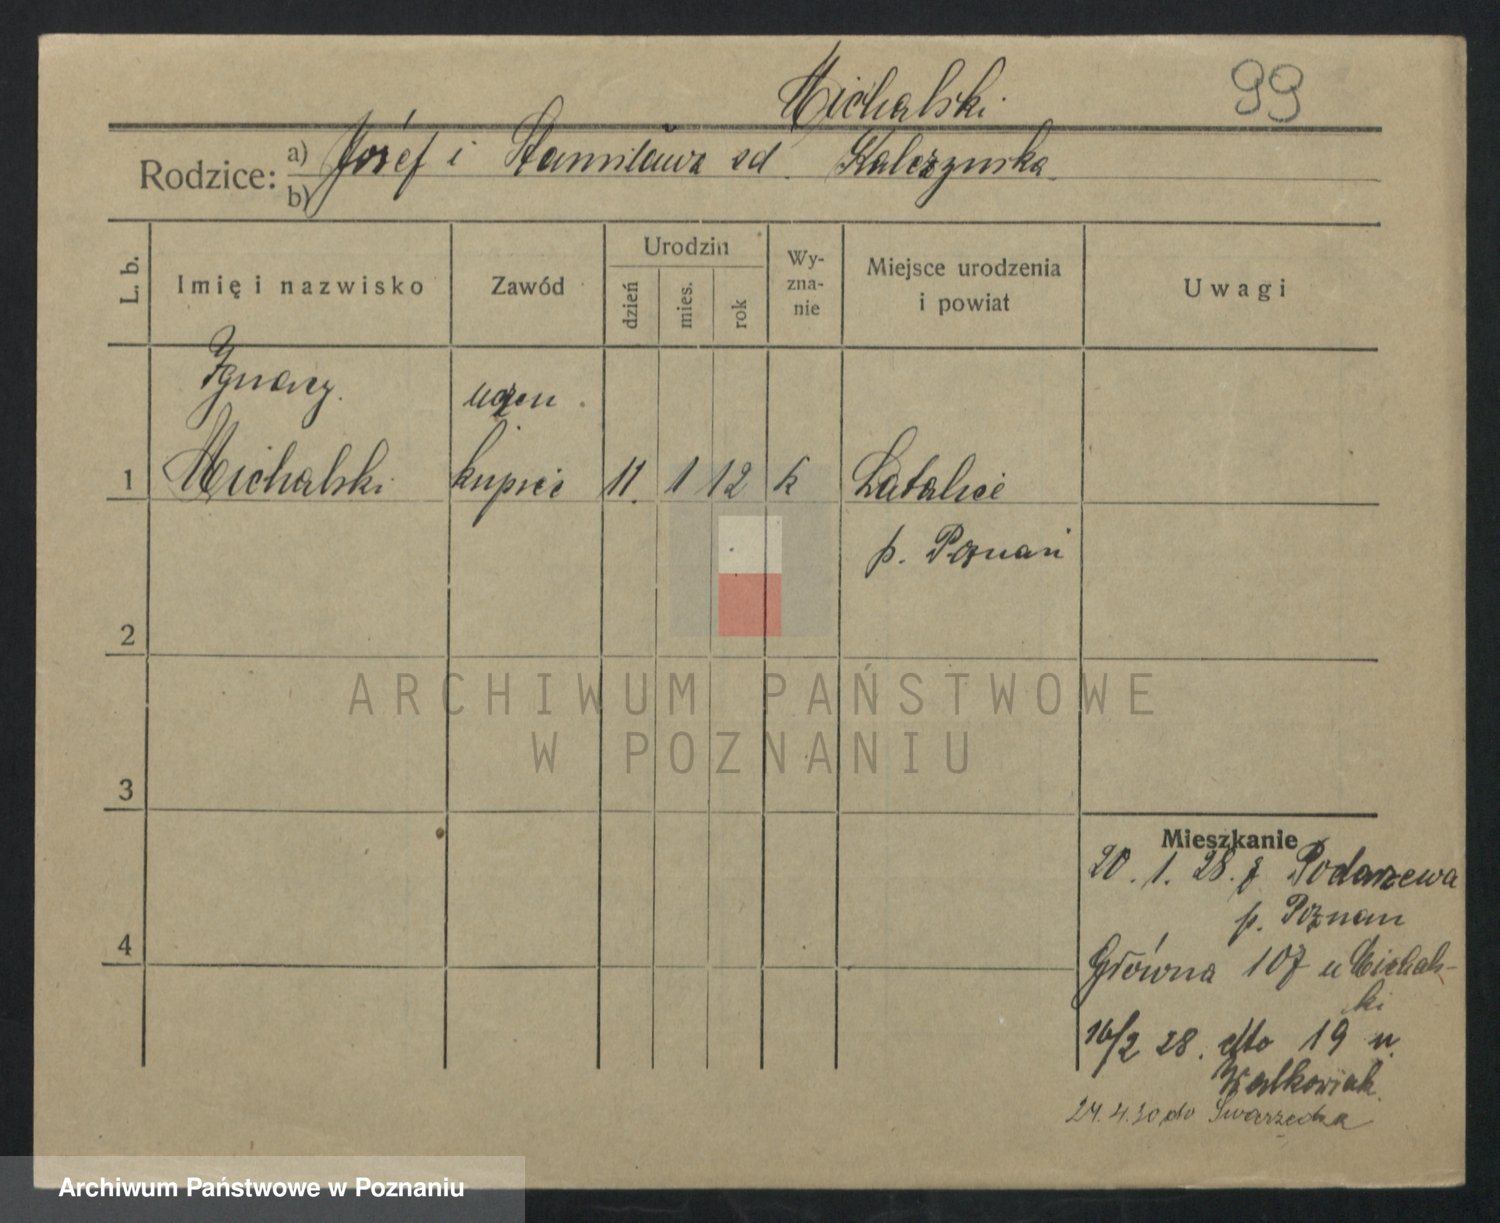 Michalski
99
Rodzice: a) Józef i Stanisława zd. Kalczynska
b)
L. b.
Imię i nazwisko
Zawód
Urodzin
dzień
mies.
rok
Wy-
zna-
nie
Miejsce urodzenia
i powiat
Uwagi
Ignacy
uczen
1 Michalski kupiec 11. 1 12 k Latalice
p. Poznań
2
ARCHIWUM PAŃSTWOWE
W POZNANIU
3
Mieszkanie
20. 1. 28. z Podarzewa
p. Poznan
4
Główna 107 u Michals-
ki
16/2 28. dto 19 u.
Walkowiak
24.4.30 do Swarzędza
Archiwum Państwowe w Poznaniu